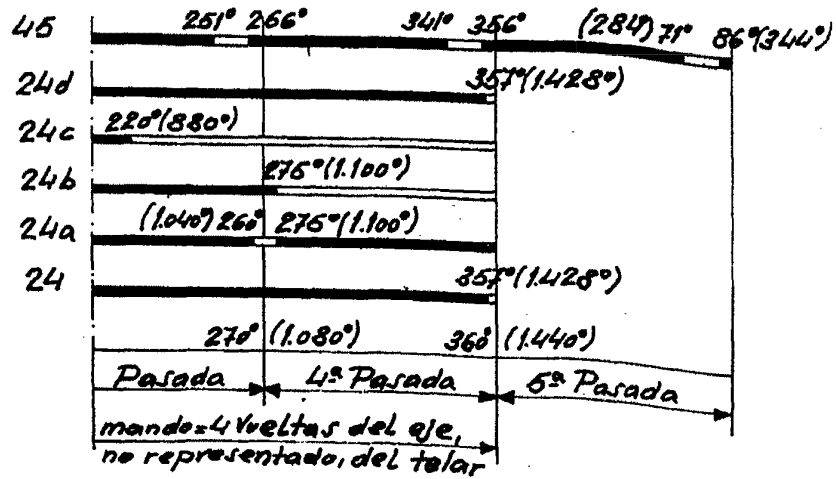 45 251° 266° 341° 356° (284°) 71° 86° (344°)
24d 357° (1.428°)
24c 220° (880°)
24b 275° (1.100°)
24a (1.040°) 260° 275° (1.100°)
24 357° (1.428°)
270° (1.080°) 360° (1.440°)
Pasada 4ª Pasada 5ª Pasada
mando=4 Vueltas del eje,
no representado, del telar